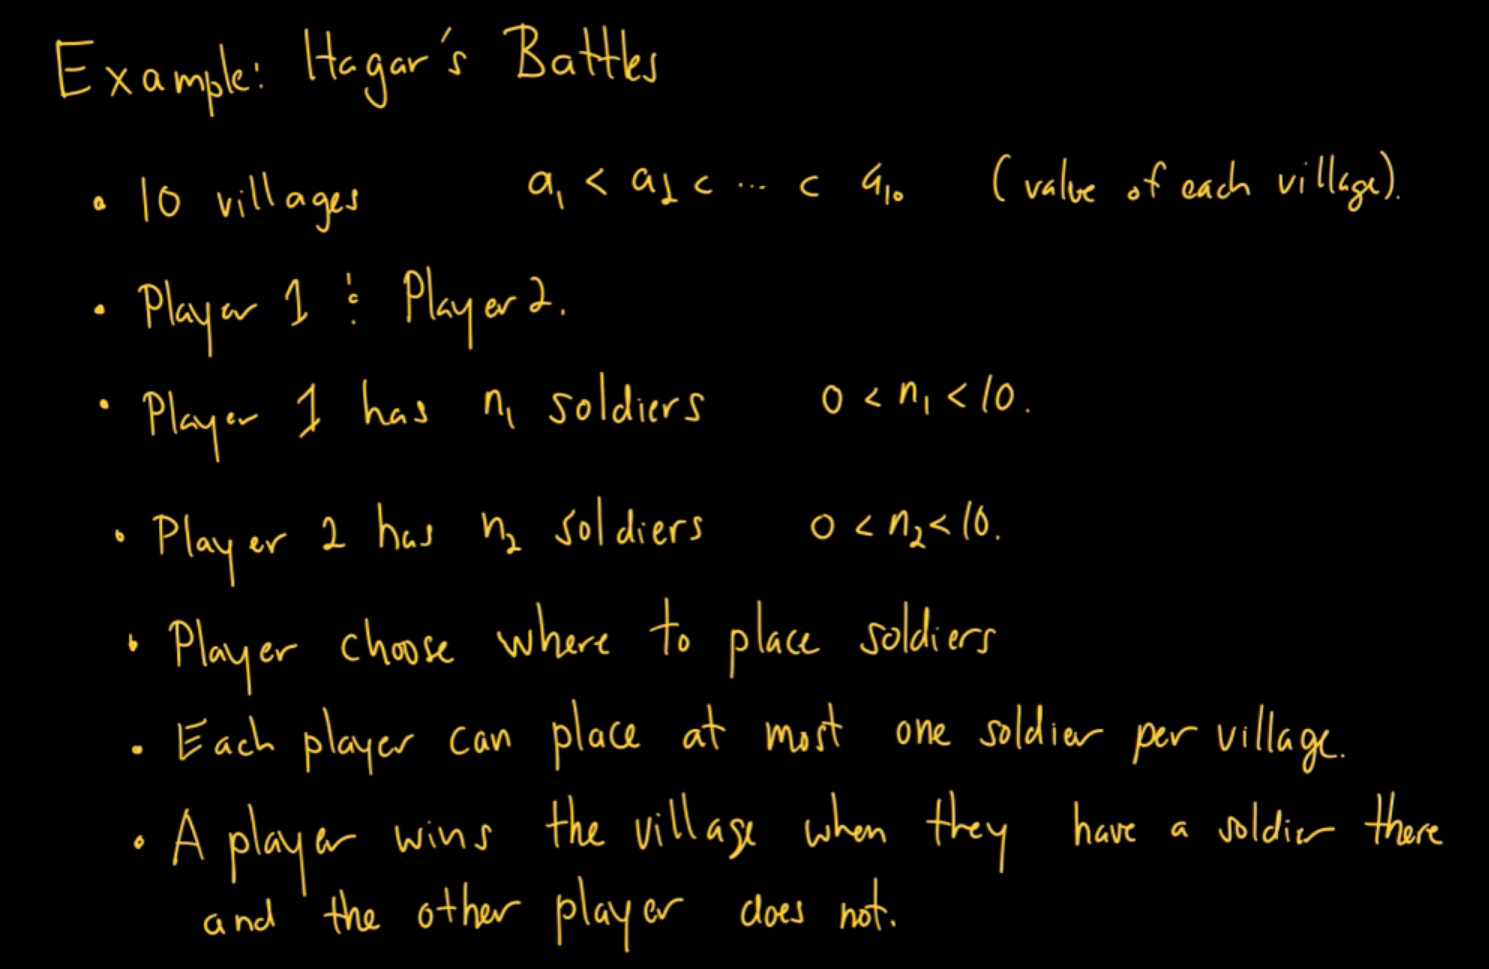 Example: Hagar's Battles
• 10 villages a₁ < a₂ < ... < a₁₀ (value of each village).
• Player 1 & Player 2.
• Player 1 has n₁ soldiers 0 < n₁ < 10.
• Player 2 has n₂ soldiers 0 < n₂ < 10.
• Player choose where to place soldiers
• Each player can place at most one soldier per village.
• A player wins the village when they have a soldier there
and the other player does not.